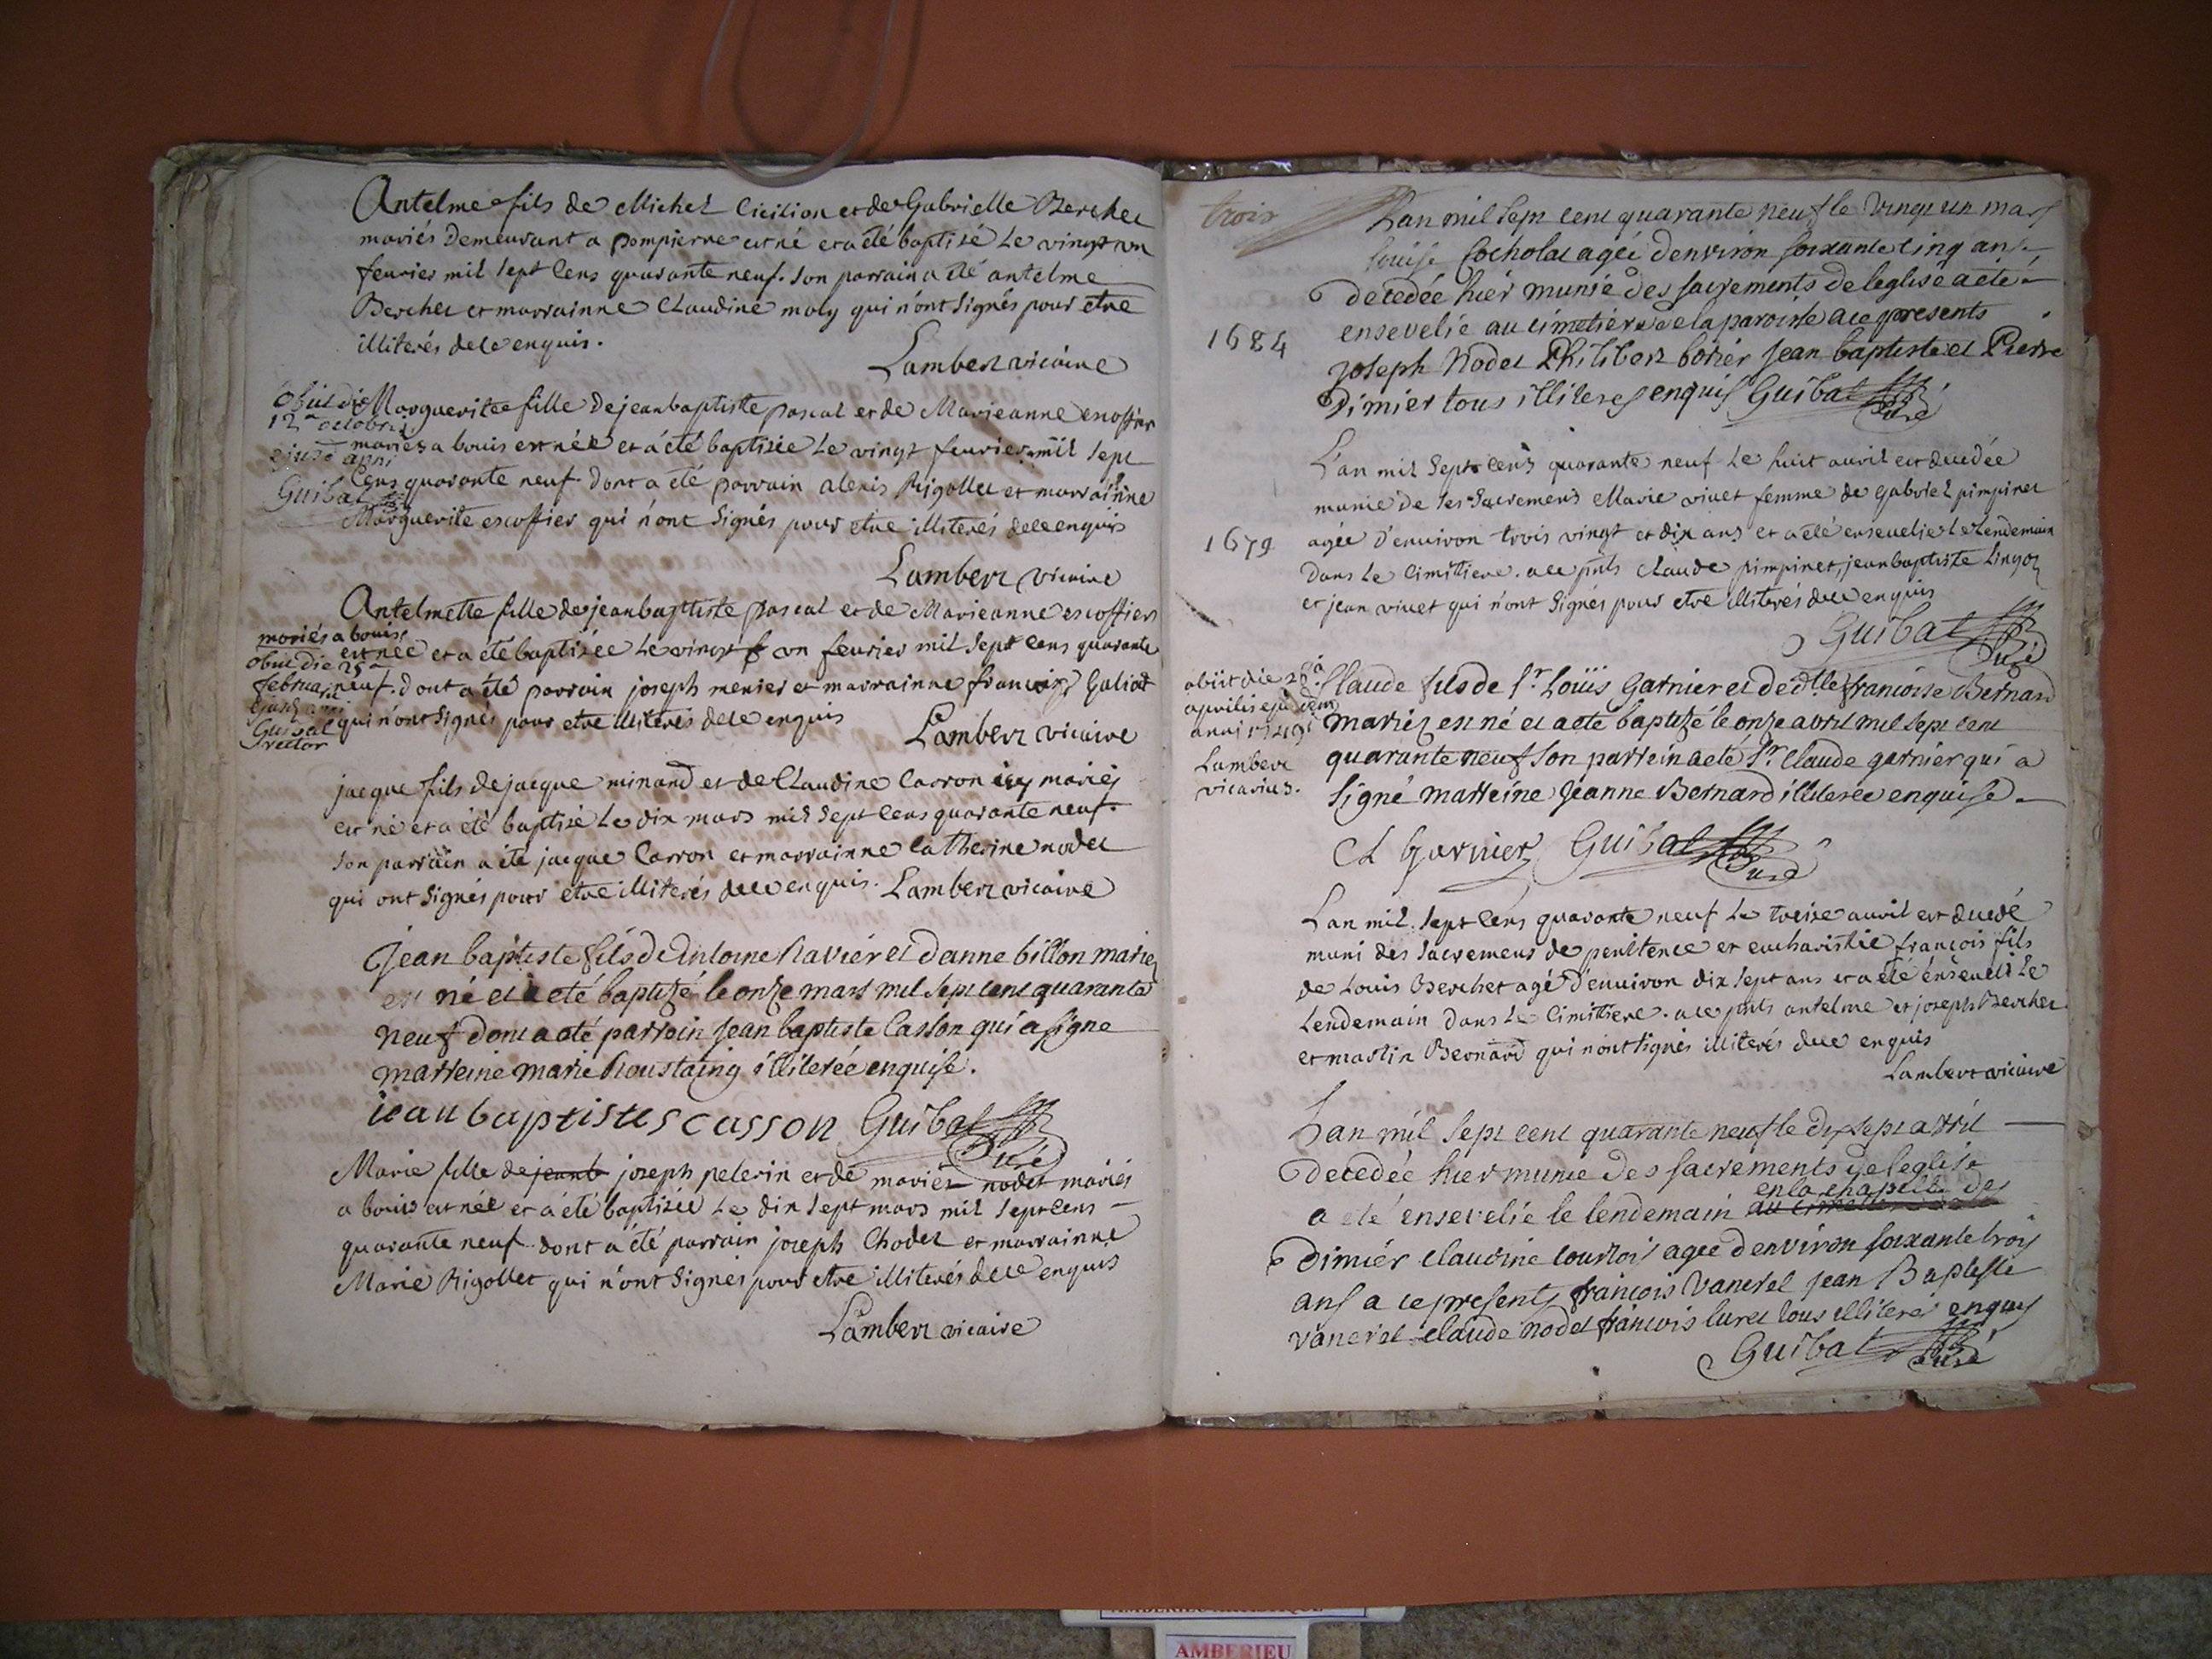 Antelme fils de Michel Cicilion et de Gabrielle Berchet
mariés demeurant a pompierre est né et a été baptisé Le vingt un
feurier mil sept Cens quarante neuf. son parrain a été antelme
Berchet et marrainne Claudine moly qui n'ont signés pour etre
illiterés de ce enquis.
Lambert vicaire
obiit die
12a octobris
ejusd anni
Guibal
Marguerite fille de jean baptiste pascal et de Marieanne escoffier
mariés a bouis est née et a été baptisée Le vingt feurier mil sept
Cens quarante neuf dont a été parrain alexis Rigollet et marrainne
Marguerite escoffier qui n'ont signés pour etre illiterés de ce enquis
Lambert vicaire
Antelmette fille de jean baptiste pascal et de Marieanne escoffier
mariés a bouis
est née et a été baptisée Le vingt un feurier mil sept Cens quarante
obiit die 25a
februarii
Guibal
rector
neuf. dont a été parrain joseph menier et marrainne Galiat
qui n'ont signés pour etre illiterés de ce enquis Lambert vicaire
jacque fils de jacque minand et de Claudine Carron icy mariés
est né et a été baptisé Le dix mars mil sept Cens quarante neuf.
son parrain a été jacque Carron et marrainne Catherine nodet
qui ont signés pour etre illiterés de ce enquis. Lambert vicaire
Jean baptiste fils de Antoine Ravier et danne billon mariez
est né et a eté baptizé le onze mars mil sept cent quarante
neuf dont a eté parrain Jean baptiste Casson qui a signe
marreine marie Roustaing illiterée enquise.
iean baptistes casson Guibal Curé
Marie fille de jeanb joseph pelerin et de marier nodet mariés
a bouis est née et a été baptisée Le dix sept mars mil sept Cens
quarante neuf. dont a été parrain joseph Chodet et marrainne
Marie Rigollet qui n'ont signés pour etre illiterés de ce enquis
Lambert vicaire
trois
Lan mil sept cent quarante neuf le vingt un mars
louise Cocholat agée denviron soixante cinq ans
decedée hier munie des sacrements de leglise a eté
ensevelie au cimetiere de la paroisse a ce presents
1684
joseph Nodet Philibert borier Jean baptiste et Pierre
Dimier tous illiteres enquis Guibal Curé
L'an mil sept Cens quarante neuf Le huit auril est decedée
munie de ses sacremens Marie viuet femme de gabriel pimpinet
1679
agée d'enuiron trois vingt et dix ans et a été enseuelie Le Lendemain
dans Le Cimitiere. a ce pnts Claude pimpinet, jean baptiste Lingot
et jean viuet qui n'ont signés pour etre illiterés de ce enquis
Guibal Curé
obiit die 28a
aprilis ejusdem
anni 1749
Lambert
vicarius.
Claude fils de sr Loüis Garnier et de dlle francoise Bernard
mariez est né et a eté baptizé le onze avril mil sept cent
quarante neuf son parrein a eté Sr Claude garnier qui a
signé marreine Jeanne Bernard illiterée enquise
Cl Garnier Guibal Curé
Lan mil sept Cens quarante neuf Le treize auril est decedé
muni des sacremens de penitence et eucharistie françois fils
de Louis Berchet agé d'enuiron dix sept ans et a été enseueli Le
Lendemain dans Le Cimitiere. a ce pnts antelme et joseph Berchet
et martin Bernard qui n'ont signés illiterés de ce enquis
Lambert vicaire
Lan mil sept cent quarante neuf le dix sept avril
decedée hier munie des sacrements de leglise
en la chapelle des
a eté ensevelie le lendemain au cimetiere
Dimier Claudine Courtois agee denviron soixante trois
ans a ce presents francois Vanerel Jean Baptiste
vanerel claude nodet francois luret tous illiteres enquis
Guibal Curé
AMBERIEU